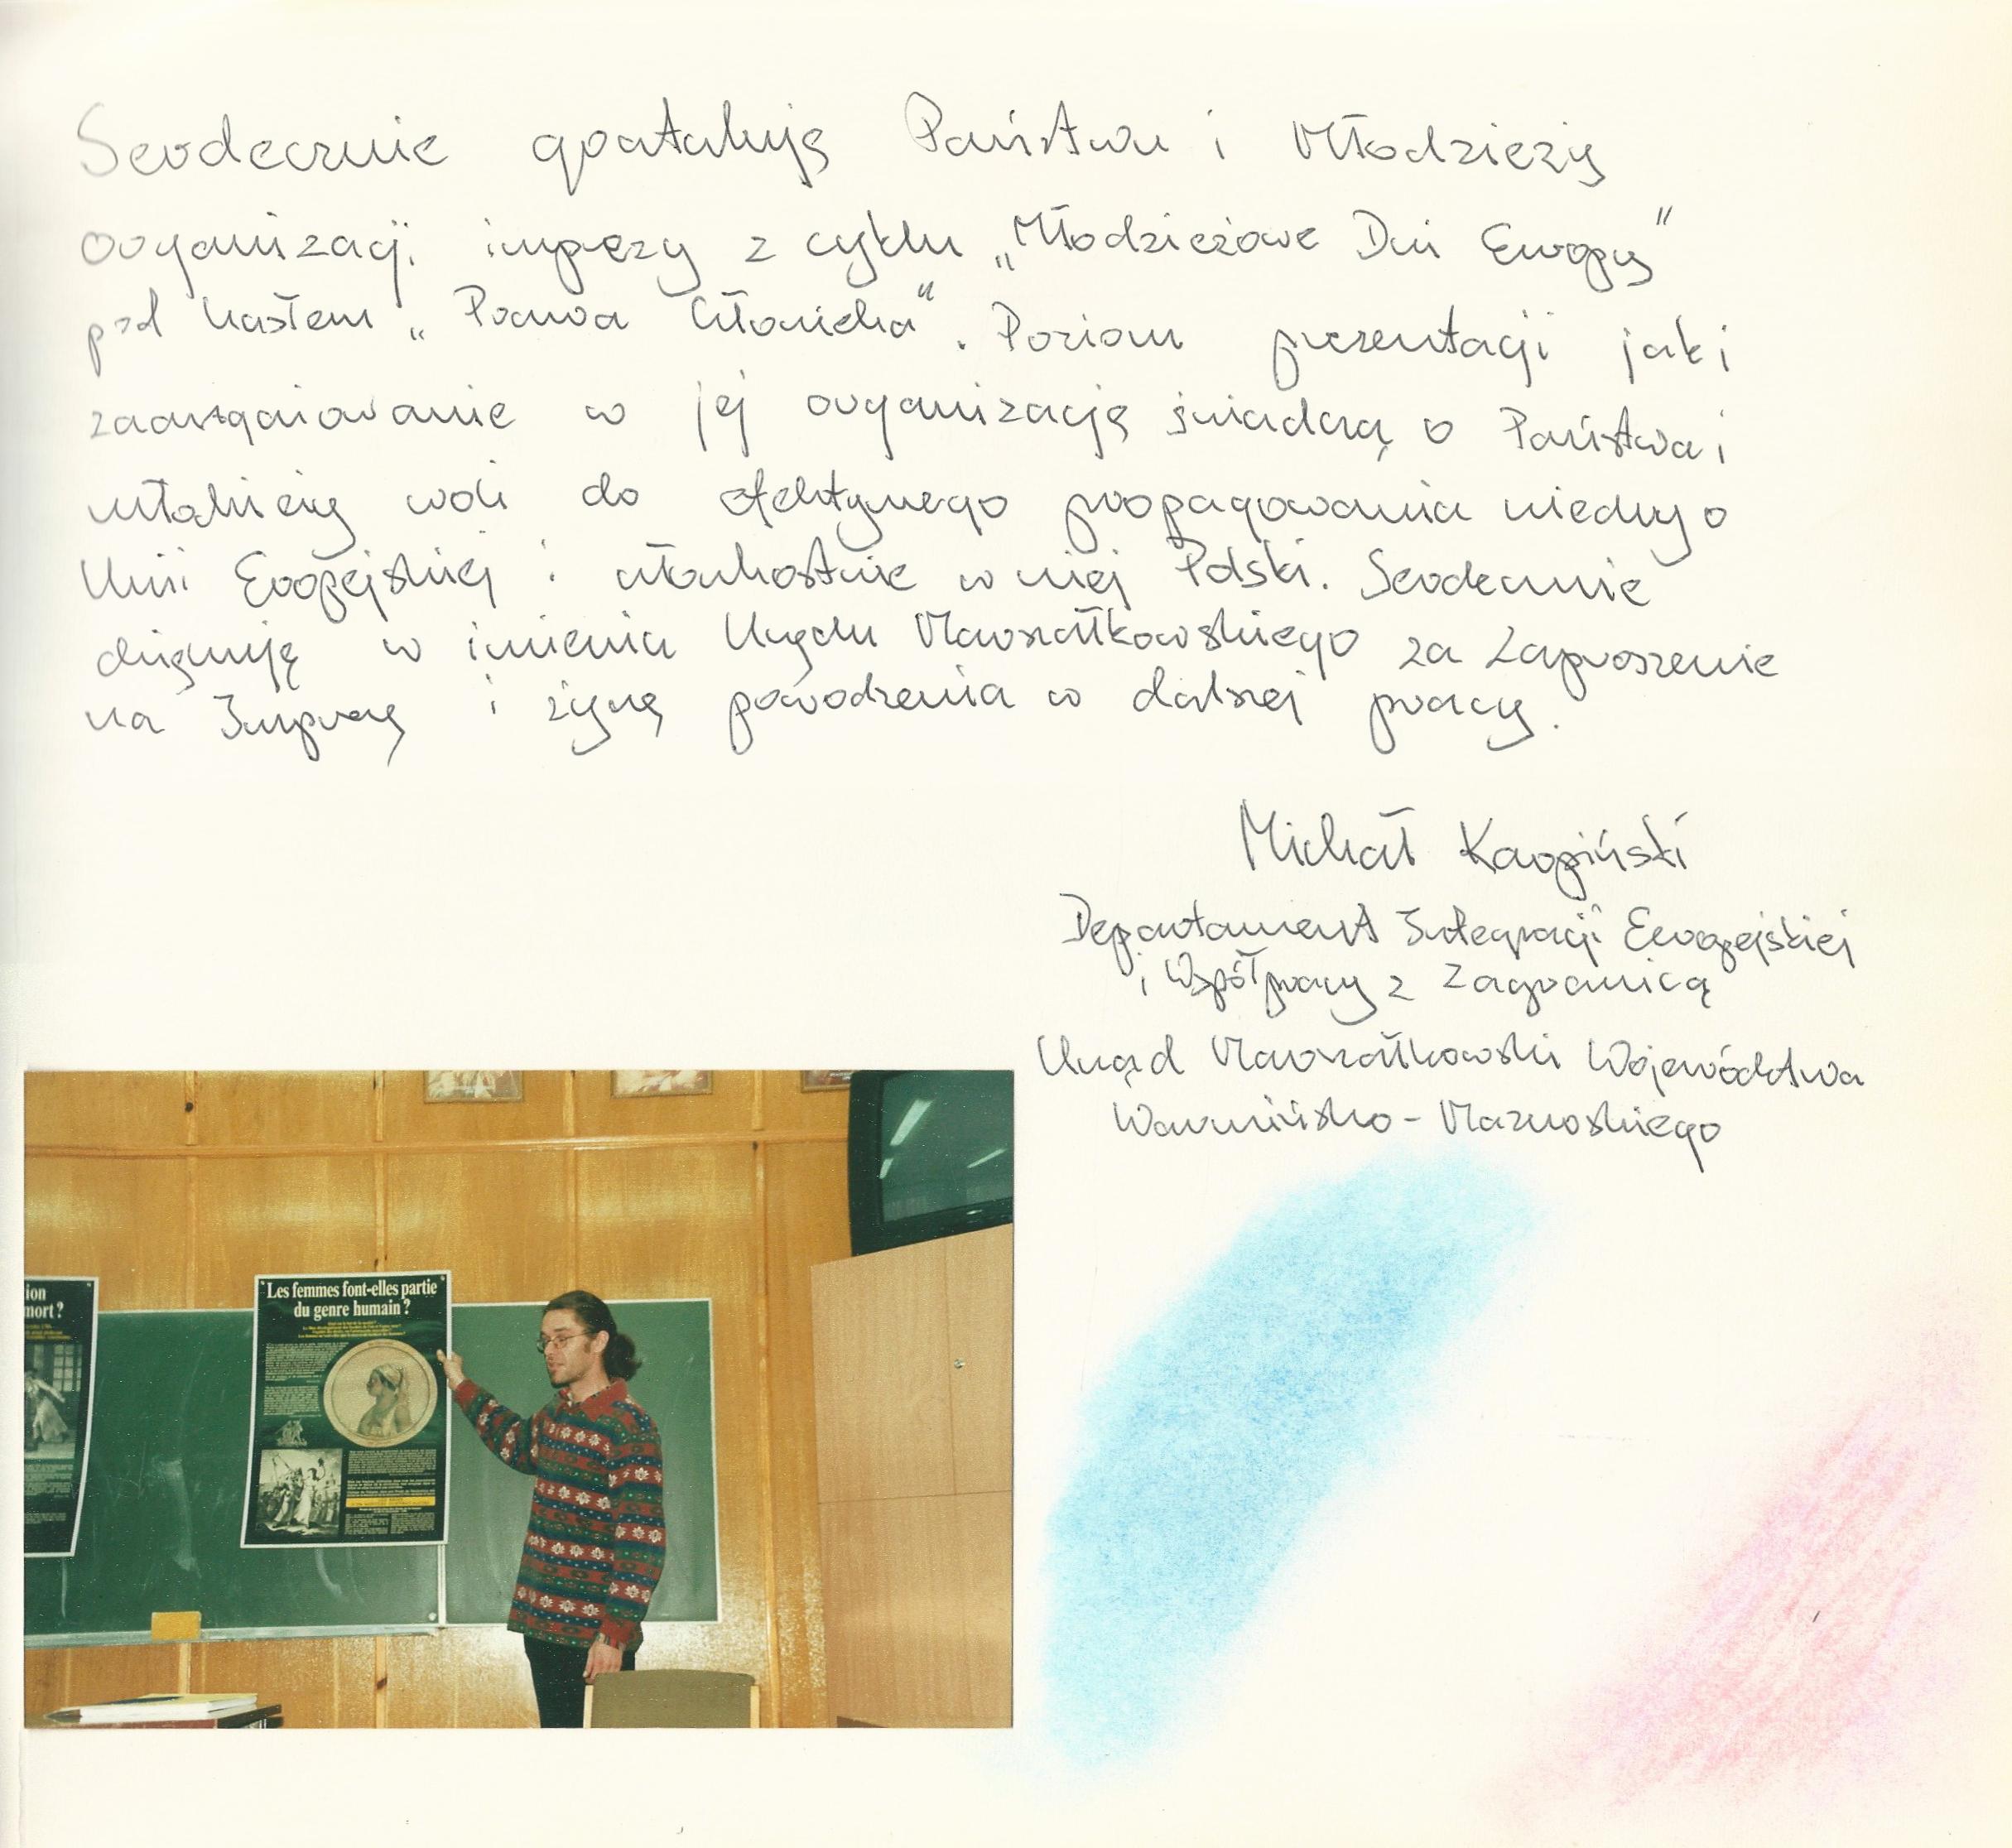 Serdecznie gratuluję Państwu i Młodzieży
organizacji imprezy z cyklu „Młodzieżowe Dni Europy"
pod hasłem „Prawa Człowieka". Poziom prezentacji jaki
zaangażowanie w jej organizację świadczą o Państwa i
młodzieży woli do efektywnego propagowania wiedzy o
Unii Europejskiej i członkostwie w niej Polski. Serdecznie
dziękuję w imieniu Urzędu Marszałkowskiego za zaproszenie
na Imprezę i życzę powodzenia w dalszej pracy.
Michał Karpiński
Departament Integracji Europejskiej
i Współpracy z Zagranicą
Urząd Marszałkowski Województwa
Warmińsko-Mazurskiego
ion
mort?
"Les femmes font-elles partie
du genre humain?"